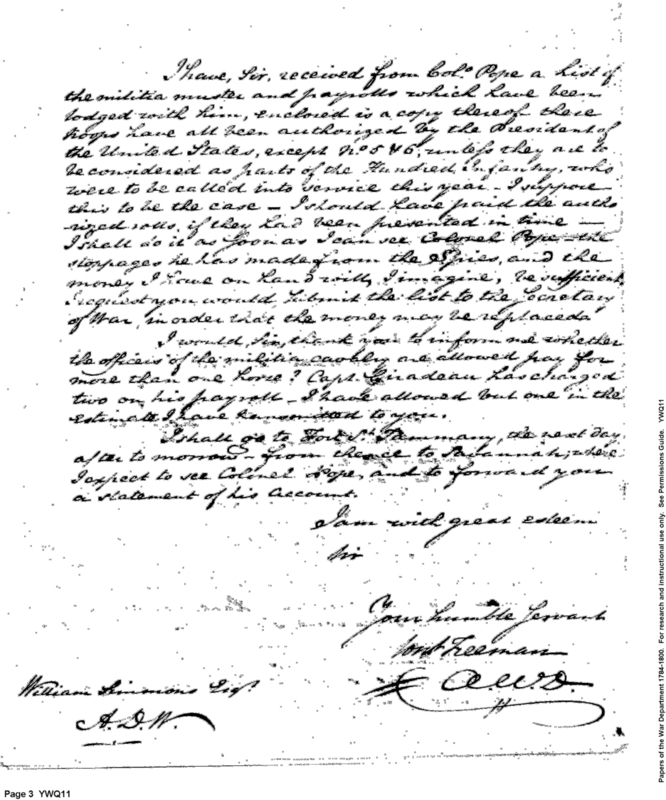 I have, Sir, received from Colo. Pope a List of
the militia muster and payrolls which have been
lodged with him, enclosed is a copy thereof - these
troops have all been authorized by the President of
the United States, except No. 5 & 6, unless they are to
be considered as parts of the Hundred Infantry, who
were to be called into service this year - I suppose
this to be the case - I should have paid the autho
rized rolls, if they had been presented in time -
I shall do it as soon as I can see Colonel Pope - the
stoppages he has made from the Spies, and the
money I have on hand will, I imagine, be sufficient,
I request you would submit the list to the Secretary
of War, in order that the money may be replaced
I would, Sir, thank you to inform me whether
the officers of the militia cavalry are allowed pay for
more than one horse? Capt. Giradeau has charged
two on his payroll - I have allowed but one in the
estimate I have transmitted to you.
I shall go to Fort St. Tammany, the next day
after to morrow - from thence to Savannah, where
I expect to see Colonel Pope, and to forward you
a statement of his account.
I am with great esteem
Sir
Your humble Servant
Freeman
A.W.D.
William Simmons Esqr.
A.D.W.
Page 3 YWQ11
Papers of the War Department 1784-1800. For research and instructional use only. See Permissions Guide. YWQ11